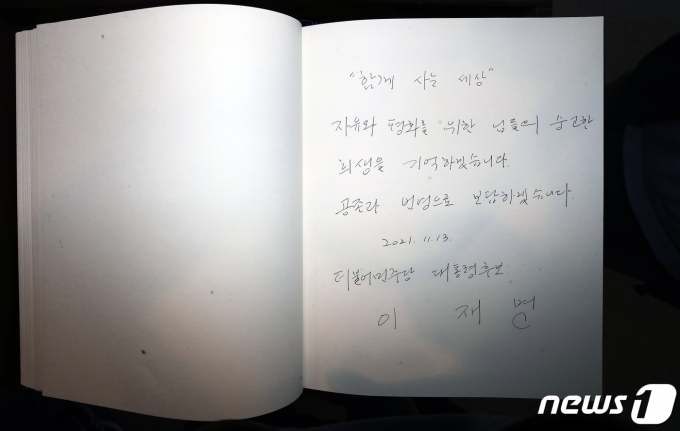 "함께 사는 세상"
자유와 평화를 위한 님들의 숭고한
희생을 기억하겠습니다.
공존과 번영으로 보답하겠습니다
2021. 11. 13.
더불어민주당 대통령후보
이 재 명
news1